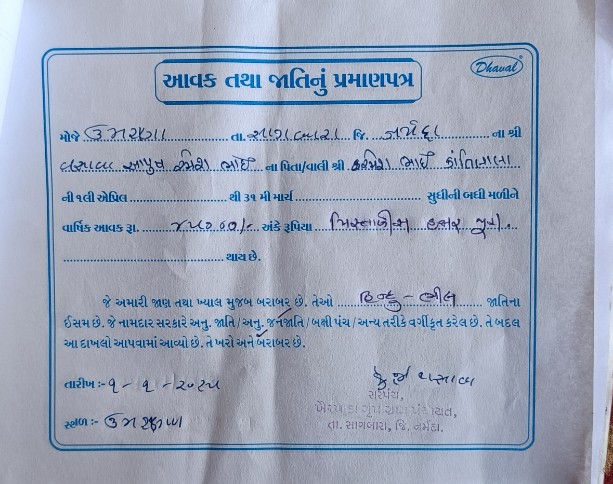 Dhaval
આવક તથા જાતિનું પ્રમાણપત્ર
મોજે ઉમરાણ તા. સાગબારા જિ. નર્મદા ના શ્રી
વસાવા આયુષ રમેશ ભાઈ ના પિતા/વાલી શ્રી રમેશ ભાઈ કાંતિલાલ
ની ૧લી એપ્રિલ થી ૩૧ મી માર્ચ સુધીની બધી મળીને
વાર્ષિક આવક રૂા. ૪૫૦૦૦/- અંકે રૂપિયા પિસ્તાળીસ હજાર પૂરા.
થાય છે.
જે અમારી જાણ તથા ખ્યાલ મુજબ બરાબર છે. તેઓ હિન્દુ - ભીલ જાતિના
ઈસમ છે. જે નામદાર સરકારે અનુ. જાતિ/અનુ. જનજાતિ/બક્ષી પંચ/અન્ય તરીકે વર્ગીકૃત કરેલ છે. તે બદલ
આ દાખલો આપવામાં આવ્યો છે. તે ખરો અને બરાબર છે.
તારીખ :- ૧-૧-૨૦૨૫
સરપંચ,
ગૃપ ગ્રામ પંચાયત,
સ્થળ :-
તા. સાગબારા, જિ. નર્મદા.